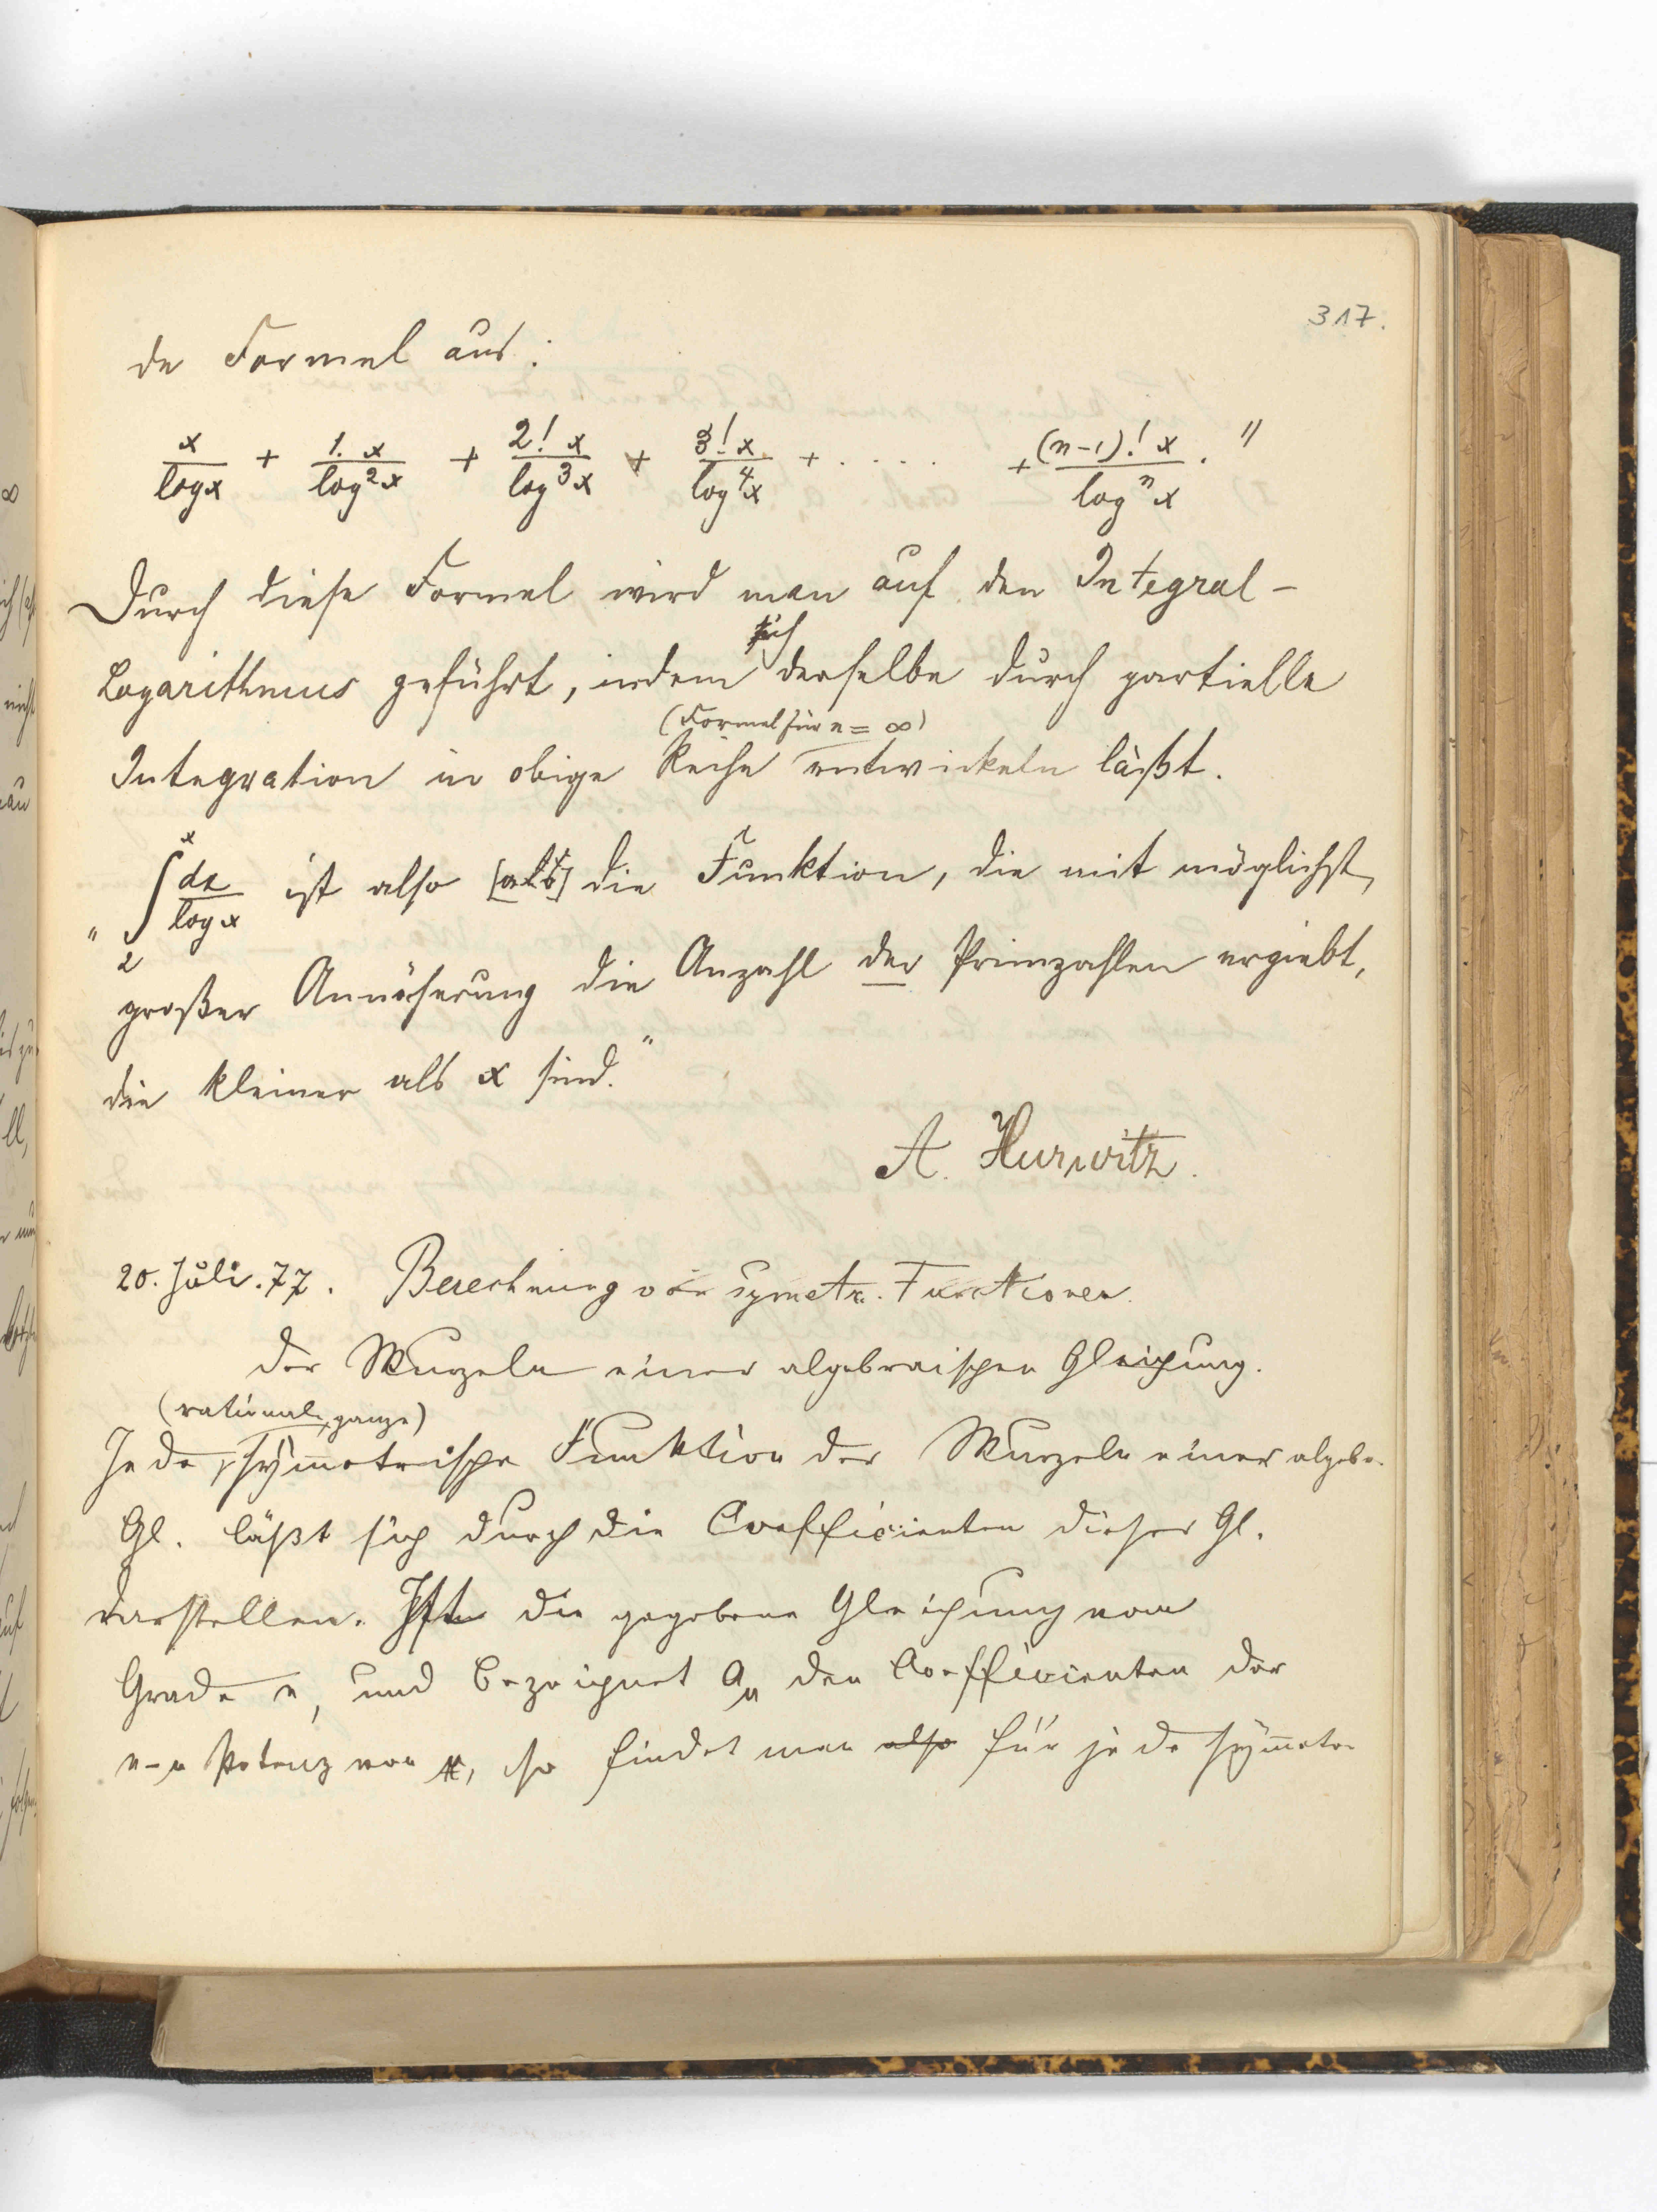 317.
de Formel aus:
x/log x + 1.x/log²x + 2! x/log³x + 3! x/log⁴x + ..... + (n-1)! x/logⁿx . "
Durch diese Formel wird man auf den Integral-
sich
Logarithmus geführt, indem derselbe durch partielle
(Formel für n = ∞)
Integration in obige Reihe entwickeln läßt.
" ∫₂ˣ dx/log x ist also [als] die Funktion, die mit möglichst
großer Annäherung die Anzahl der Primzahlen ergiebt,
die kleiner als x sind."
A. Hurwitz.
20. Juli. 77. Berechnung von symetr. Functionen
der Wurzeln einer algebraischen Gleichung.
(rationale, ganze)
Jede, sym̄etrische Funktion der Wurzeln einer algebr.
Gl. läßt sich durch die Coefficienten dieser Gl.
darstellen. Ist die gegebene Gleichung vom
Grade n, und bezeichnet aₙ den Coefficienten der
n-n Potenz von x, so findet man also für jede sym̄etr